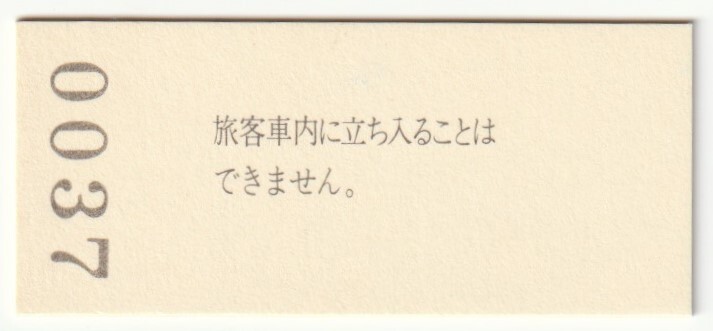 0037
旅客車内に立ち入ることは
できません。